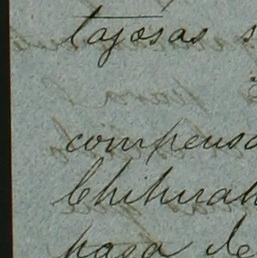 tajosas s
compensa
Chihuah
paga de